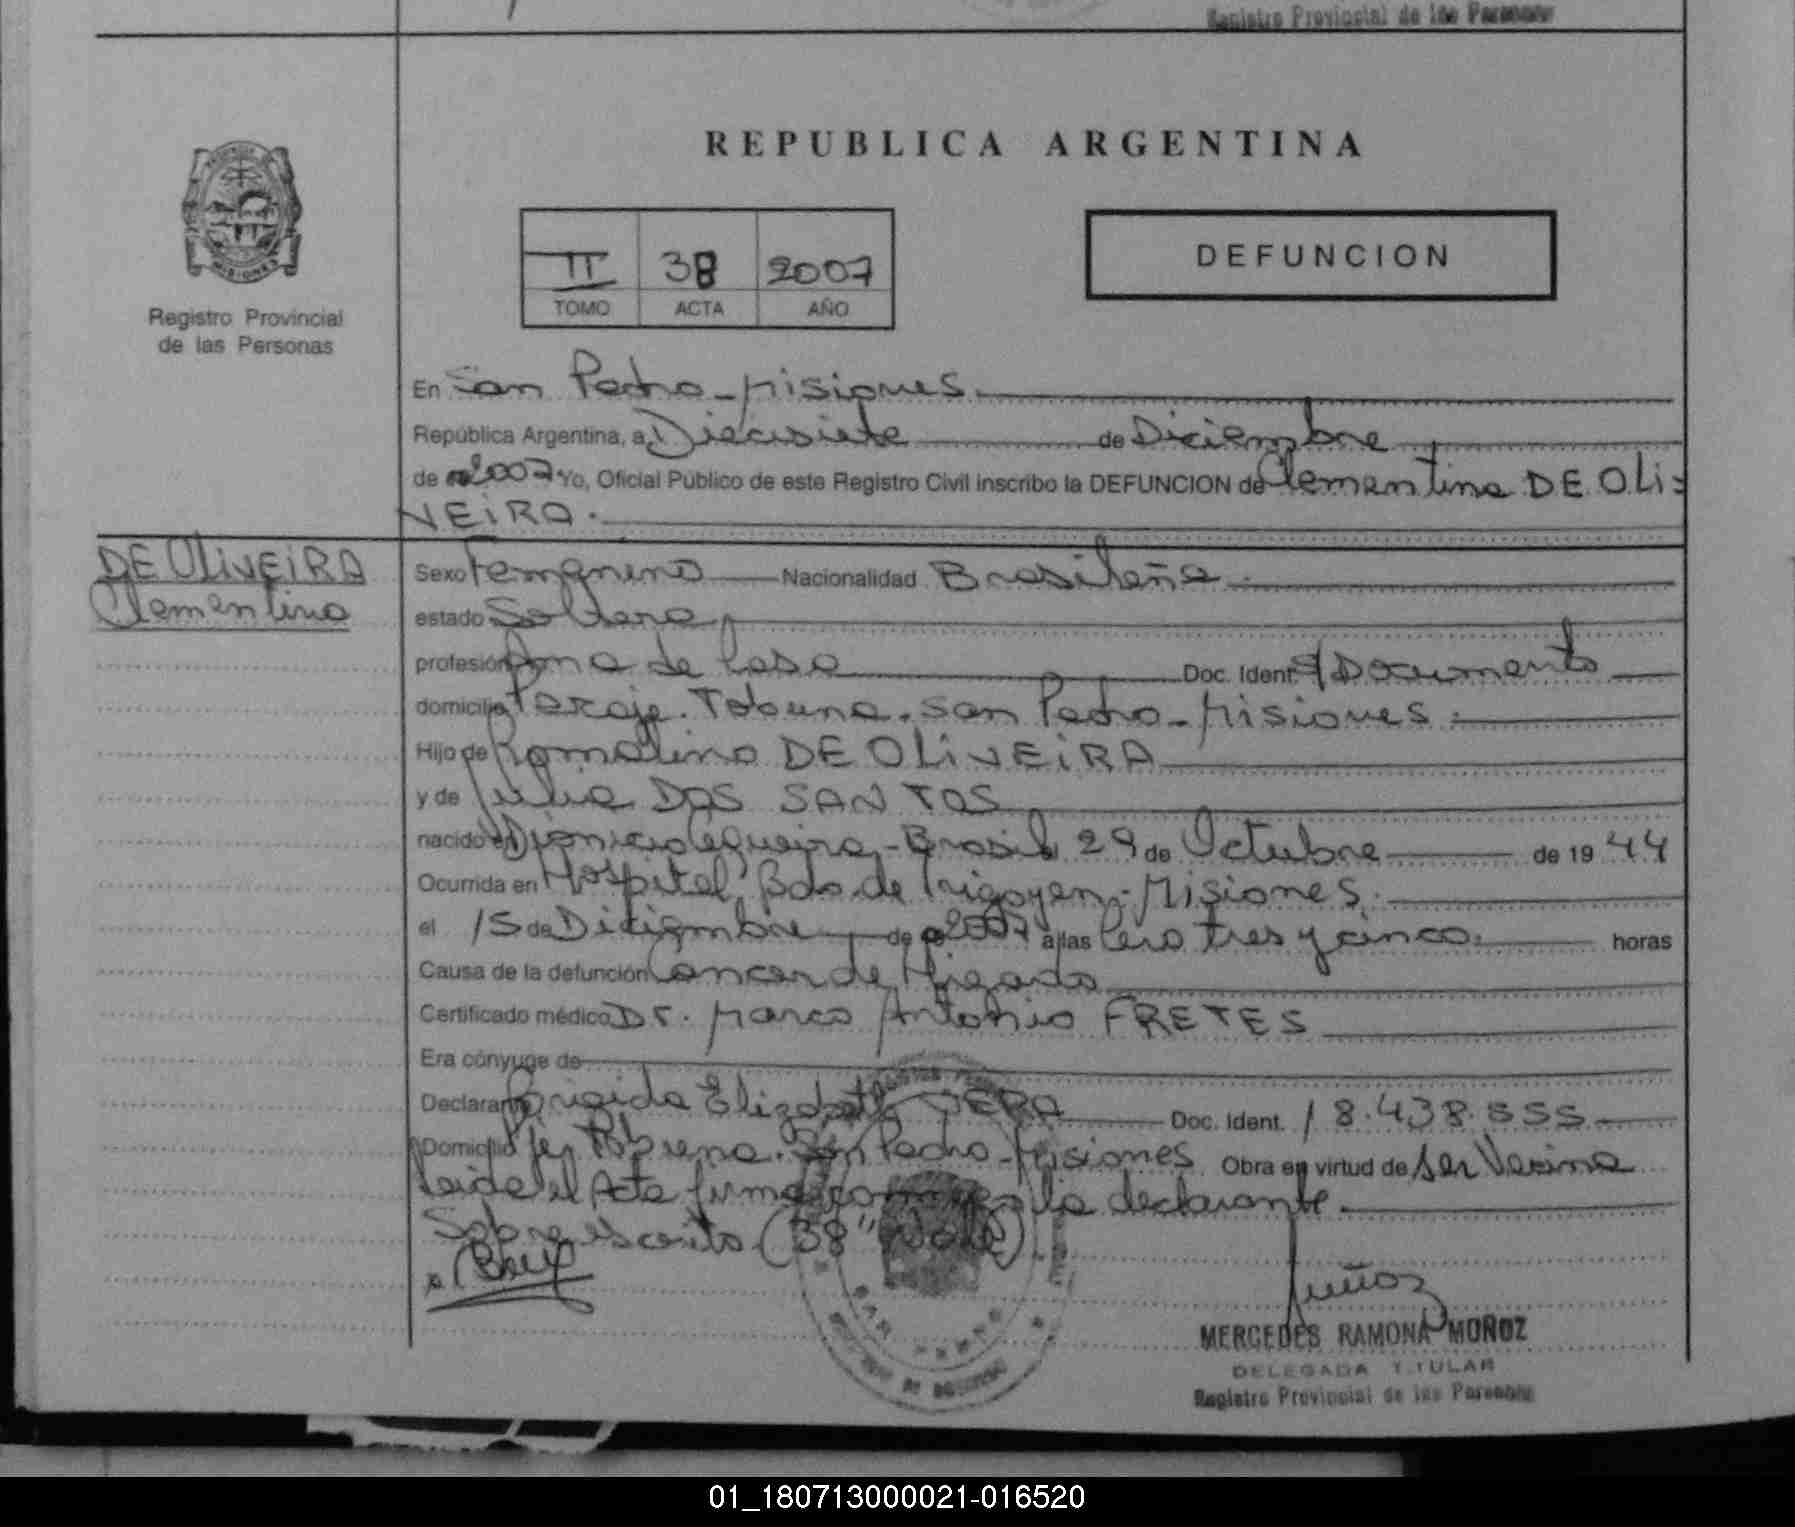 Registro Provincial de las Personas
REPUBLICA ARGENTINA
II 38 2007
TOMO ACTA AÑO
DEFUNCION
MISIONES
Registro Provincial
de las Personas
En San Pedro - Misiones
República Argentina, a Diecisiete de Diciembre
de 2007 Yo, Oficial Público de este Registro Civil inscribo la DEFUNCION de Clementina DE OLI-
VEIRA.
DE OLIVEIRA
Clementina
Sexo Femenino Nacionalidad Brasileña
estado Soltera
profesión Ama de Casa Doc. Ident. S/Documento
domicilio Paraje. Tobuna. San Pedro - Misiones.
Hijo de Romalino DE OLIVEIRA
y de Julia DOS SANTOS
nacido en Dionicio Cqueira - Brasil 29 de Octubre de 19 44
Ocurrida en Hospital Bdo. de Irigoyen - Misiones.
el 15 de Diciembre de 2007 a las Cero tres y cinco. horas
Causa de la defunción Cancer de Higado
Certificado médico Dr. Marco Antonio FRETES
Era cónyuge de
Declarante Brigida Elizabeth Doc. Ident. 18.438.555
Domicilio Pje. Tobuna. San Pedro - Misiones Obra en virtud de ser Vecina
Leida el Acta firma la declarante.
Sobre escrito (38" Vale)
Muñoz
MERCEDES RAMONA MUÑOZ
DELEGADA TITULAR
Registro Provincial de las Personas
01_180713000021-016520